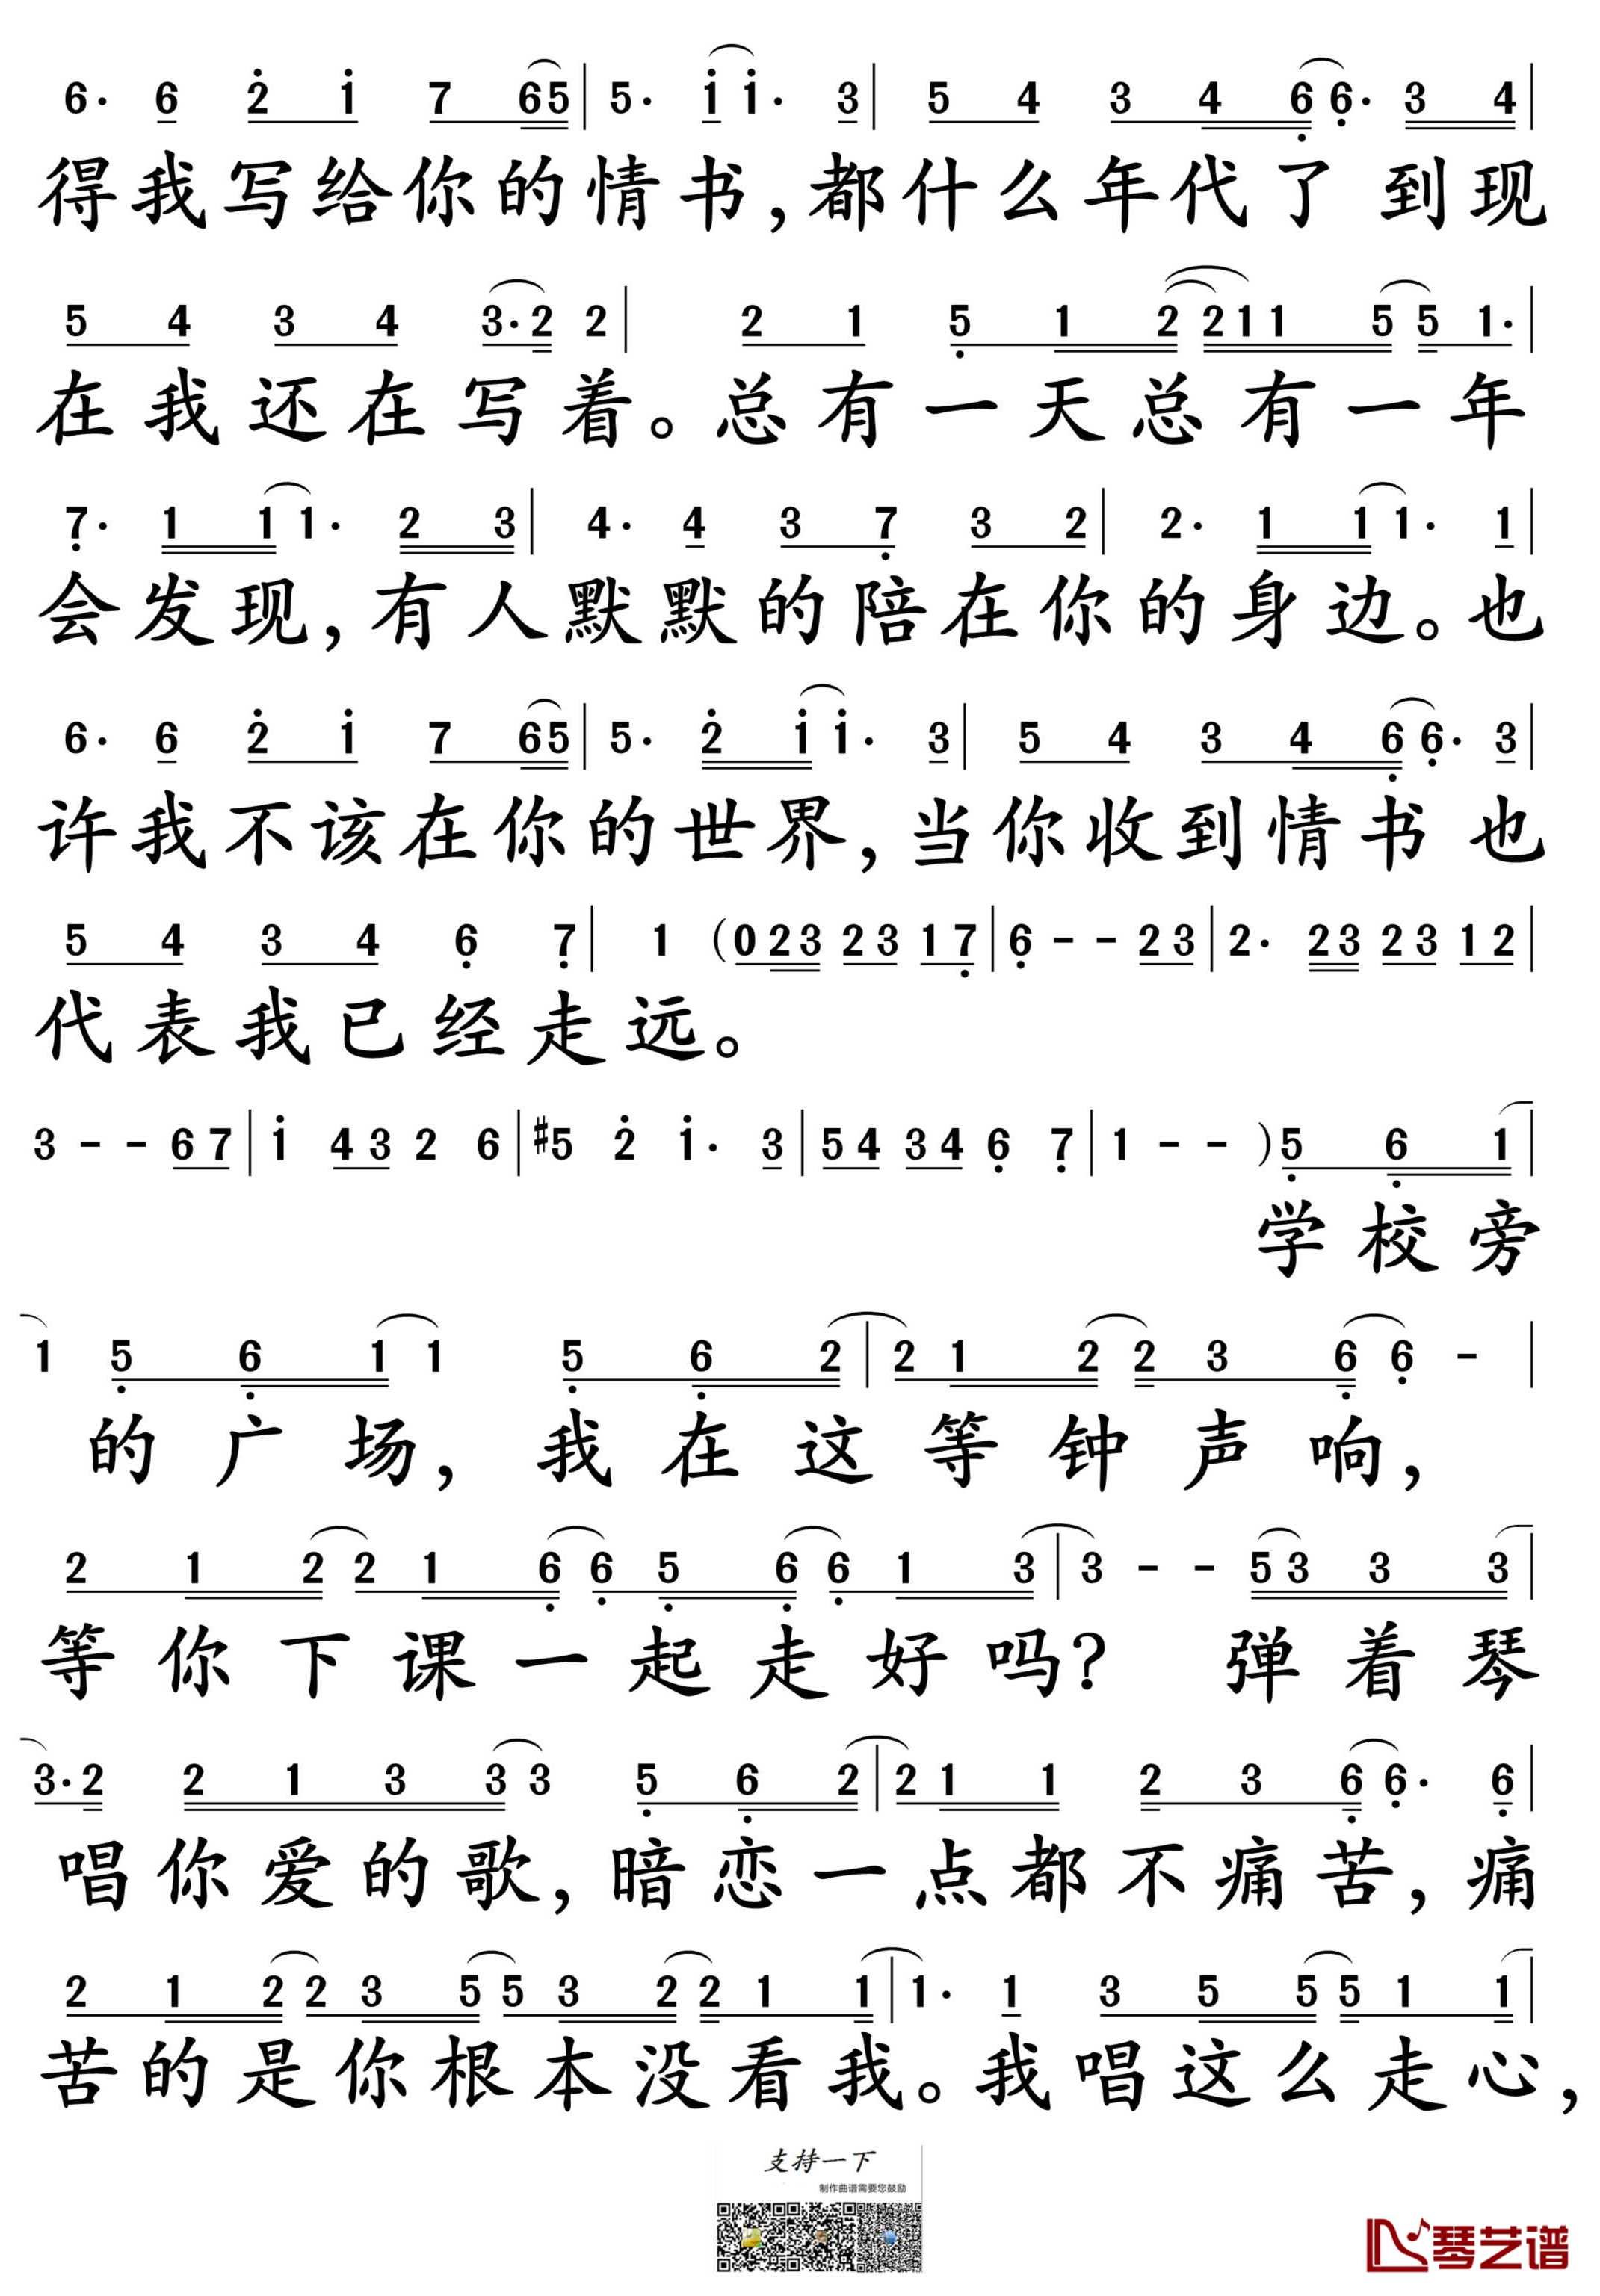 6· 6 2̇ 1̇ 7 65| 5· 1̇ 1̇· 3| 5 4 3 4 6̣ 6̣· 3 4|
得我写给你的情书,都什么年代了 到现
5 4 3 4 3·2 2| 2 1 5̣ 1 2 211 5 5 1·|
在我还在写着。总有一天总有一年
7̣· 1 1 1· 2 3| 4· 4 3 7̣ 3 2| 2· 1 1 1· 1|
会发现,有人默默的陪在你的身边。也
6· 6 2̇ 1̇ 7 65| 5· 2̇ 1̇ 1̇· 3| 5 4 3 4 6̣ 6̣· 3|
许我不该在你的世界,当你收到情书 也
5 4 3 4 6̣ 7̣| 1 (0 23 23 17̣| 6̣ - - 23| 2· 23 23 12|
代表我已经走远。
3 - - 67| 1̇ 43 2 6| #5 2̇ 1̇· 3| 54 34 6̣ 7̣| 1 - - )5̣ 6̣ 1|
学校旁
1 5̣ 6̣ 1 1 5̣ 6̣ 2| 2 1 2 2 3 6̣ 6̣ - |
的广场,我在这等钟声响,
2 1 2 2 1 6̣ 6̣ 5̣ 6̣ 6̣ 1 3| 3 - - 53 3 3|
等你下课一起走好吗? 弹着琴
3·2 2 1 3 3 3 5̣ 6̣ 2| 2 1 1 2 3 6̣ 6̣· 6̣|
唱你爱的歌,暗恋一点都不痛苦,痛
2 1 2 2 3 5 5 3 2 2 1 1| 1· 1 3 5 5 5 1 1|
苦的是你根本没看我。我唱这么走心,
支持一下
制作曲谱需要您鼓励
琴艺谱